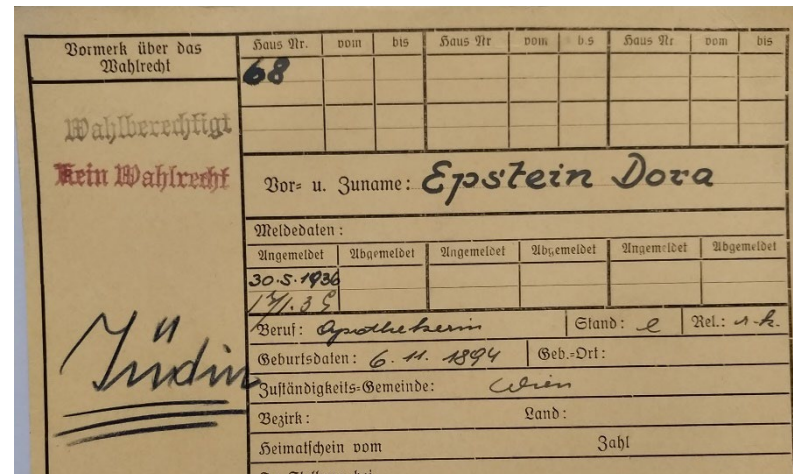 Vormerk über das
Wahlrecht
Wahlberechtigt
Kein Wahlrecht
Jüdin
Haus Nr. vom bis Haus Nr vom b.s Haus Nr vom bis
68
Vor- u. Zuname: Epstein Dora
Meldedaten:
Angemeldet Abgemeldet Angemeldet Abgemeldet Angemeldet Abgemeldet
30.5.1936
Beruf: Apothekerin Stand: l Rel.: r.k.
Geburtsdaten: 6. 11. 1894 Geb.-Ort:
Zuständigkeits-Gemeinde: Wien
Bezirk: Land:
Heimatschein vom Zahl